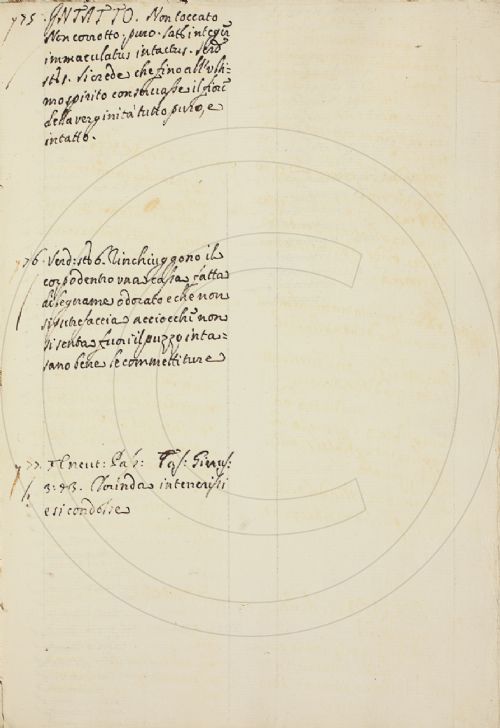 775. INTATTO. Non toccato
Non corrotto. puro. lat: integer
immaculatus intactus. Serd
Si crede che fino all'ulti-
mo spirito conservasse il fior
della verginità tutto puro, e
intatto.
776. Rinchiuggono il
corpo dentro una cassa fatta
di legname odorato e che non
si putrefaccia acciocchè non
si senta fuori il puzzo inta-
sano bene le commettiture
777. Neut: Pas: Tas: Gierus:
3:83. Clorinda intenerissi
e si condolse